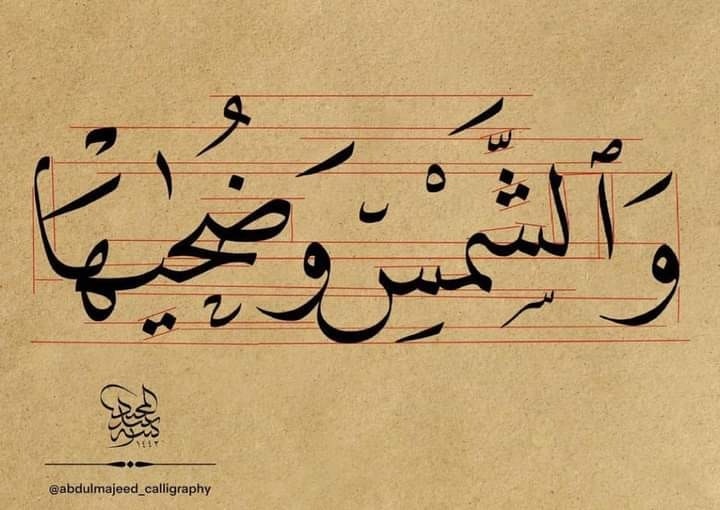 وَٱلشَّمْسِ وَضُحَىٰهَا
عبدالمجيد
١٤٤٢
@abdulmajeed_calligraphy